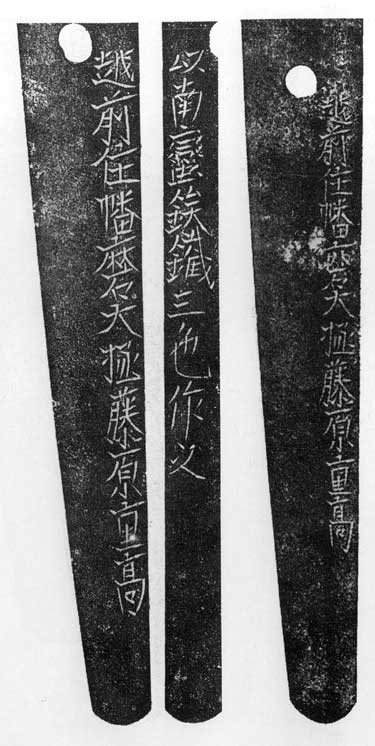 越前住幡磨大掾藤原重高
以南蠻鉄鐵三作之
越前住幡磨大掾藤原重高